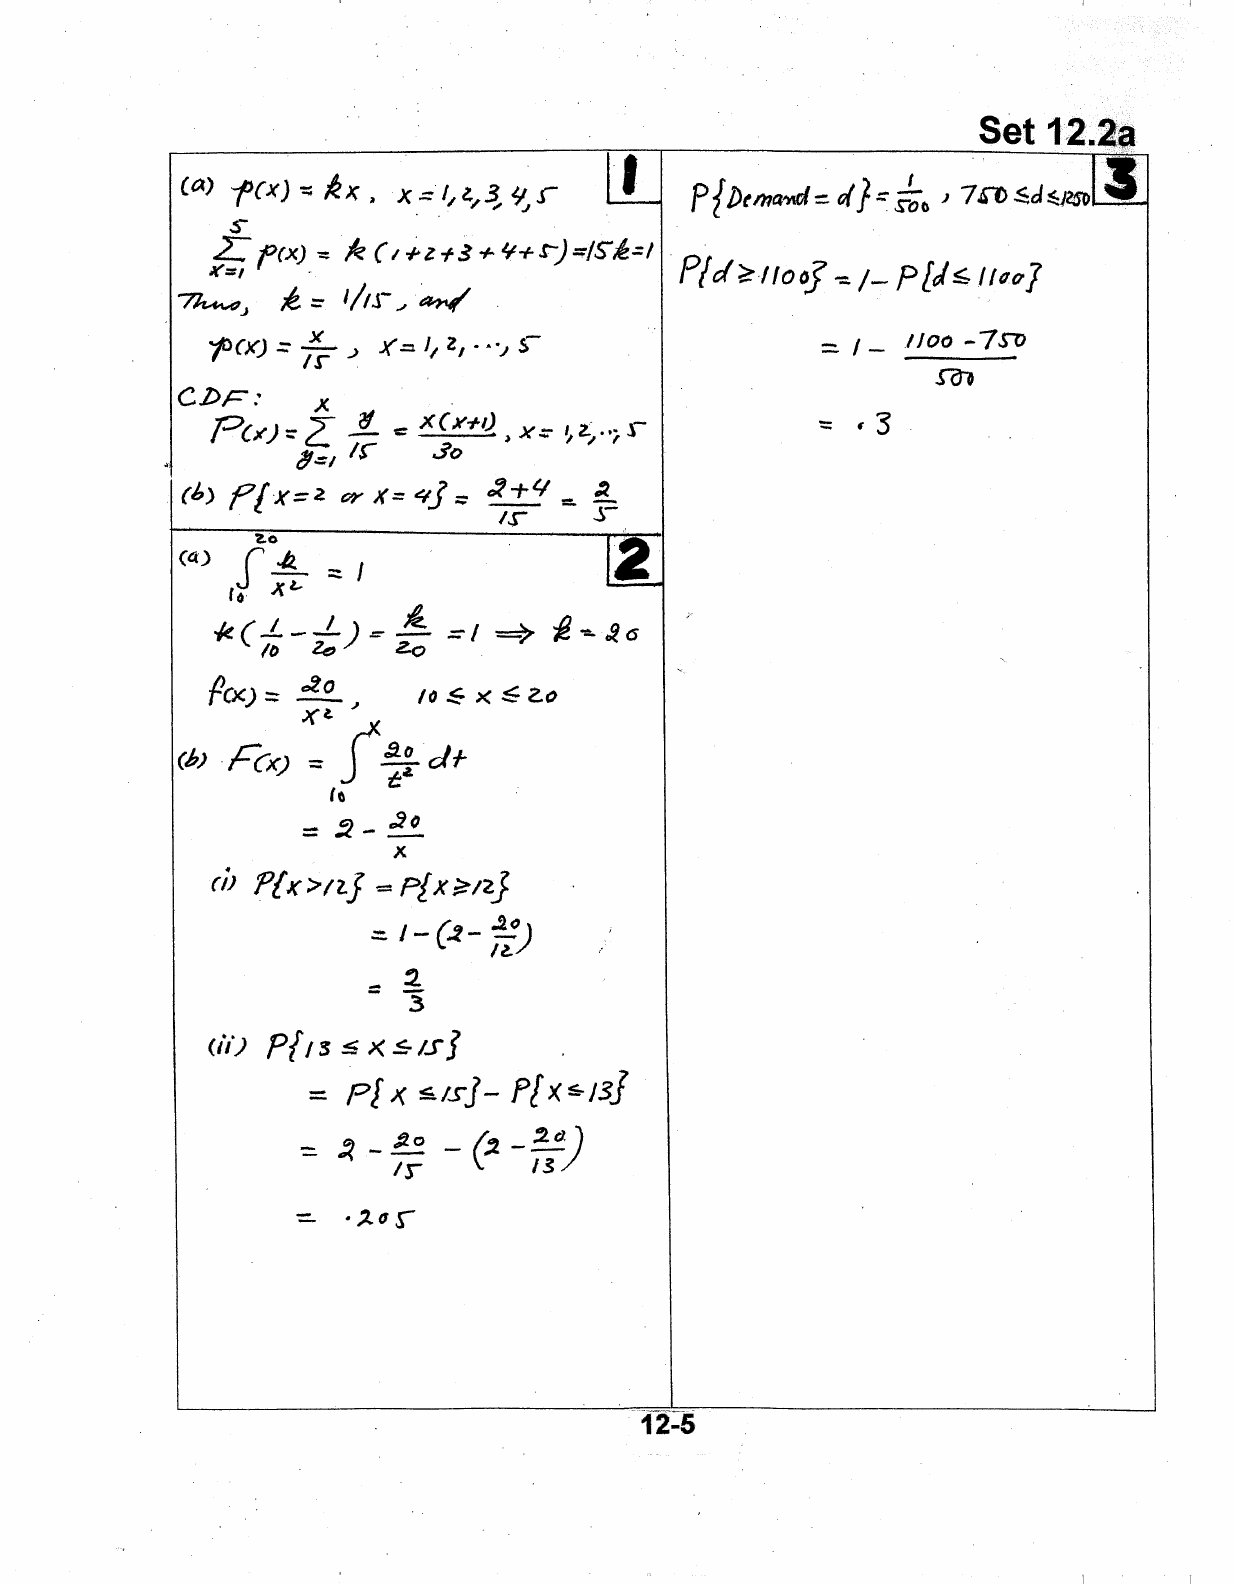 Set 12.2a
1
(a) p(x) = kx, x = 1, 2, 3, 4, 5
∑_{x=1}^{5} p(x) = k(1+2+3+4+5) = 15k = 1
Thus, k = 1/15, and
p(x) = x/15, x = 1, 2, ..., 5
CDF:
P(x) = ∑_{y=1}^{x} y/15 = x(x+1)/30, x = 1, 2, .., 5
(b) P{x=2 or x=4} = (2+4)/15 = 2/5
2
(a) ∫_{10}^{20} k/x² = 1
k(1/10 - 1/20) = k/20 = 1 ⟹ k = 20
f(x) = 20/x², 10 ≤ x ≤ 20
(b) F(x) = ∫_{10}^{x} 20/t² dt
= 2 - 20/x
(i) P{x>12} = P{x≥12}
= 1 - (2 - 20/12)
= 2/3
(ii) P{13 ≤ x ≤ 15}
= P{x ≤ 15} - P{x ≤ 13}
= 2 - 20/15 - (2 - 20/13)
= .205
3
P{Demand = d} = 1/500, 750 ≤ d ≤ 1250
P{d ≥ 1100} = 1 - P{d ≤ 1100}
= 1 - (1100 - 750)/500
= .3
12-5